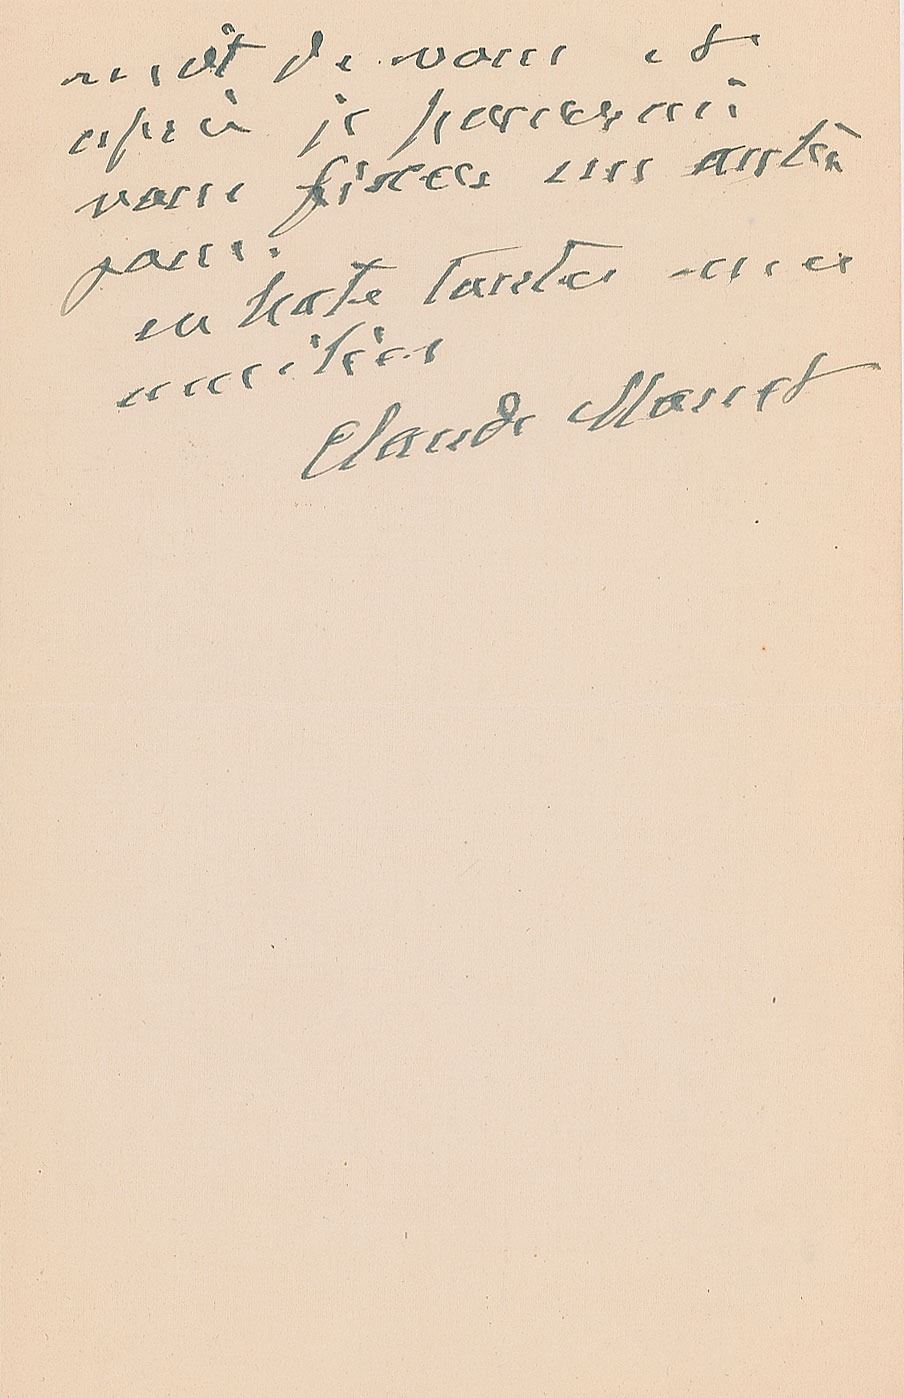 mot de vous et
après je pourrai
vous fixer un autre
jour.
en hate toutes mes
amitiés
Claude Monet